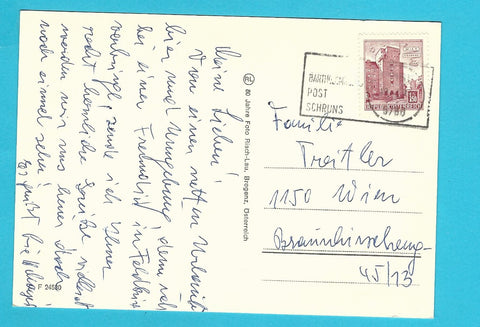 Meine Lieben!
Von einem netten Urlaub
hier und Umgebung, den ich
bei einer Freundin in Feldkirch
verbringe, sende ich Ihnen
recht herzliche Grüße vielleicht
werden wir uns heuer doch
noch einmal sehen!
Es grüßt Sie
80 Jahre Foto Risch-Lau, Bregenz, Österreich
F 24580
POST
SCHRUNS
6780
REPUBLIK ÖSTERREICH
Familie
Treitler
1150 Wien
Braunhirscheng.
45/13